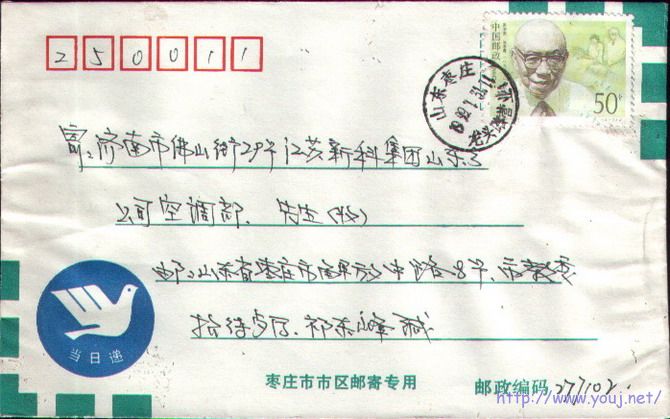 250011
中国邮政
50分
山东枣庄
寄:济南市佛山街29号江苏新科集团山东分
公司空调部. 先生(收)
邮:山东省枣庄市解放中路8号.市教委
招待步行.祁东峰 缄
当日递
枣庄市市区邮寄专用
邮政编码 277102.
http://www.youj.net/